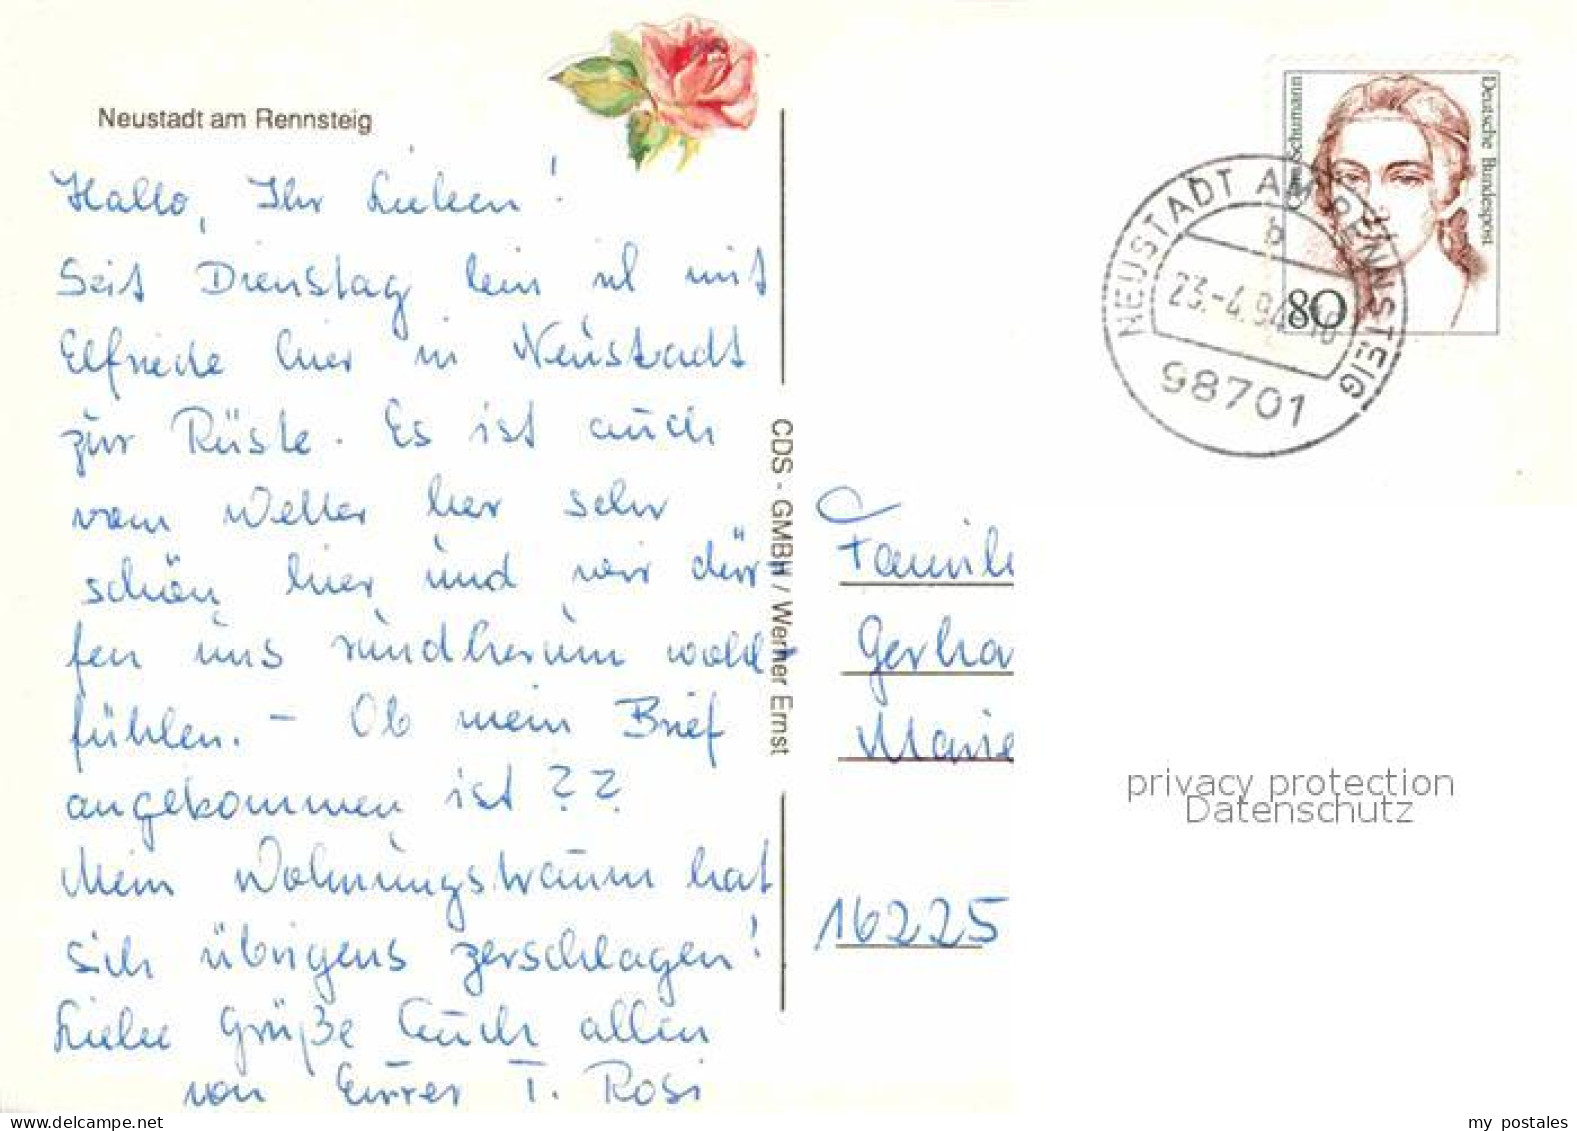 Neustadt am Rennsteig
Hallo, Ihr Lieben!
Seit Dienstag bin ich mit
Elfriede hier in Neustadt
zur Rüste. Es ist auch
vom Wetter her sehr
schön hier und wir dür-
fen uns rundherum wohl-
fühlen. – Ob mein Brief
angekommen ist??
Mein Wohnungstraum hat
sich übrigens zerschlagen!
Liebe Grüße Euch allen
von Eurer T. Rosi
CDS - GMBH / Werner Ernst
Schumann
Deutsche Bundespost
80
NEUSTADT AM RENNSTEIG
b
23.-4.94
98701
Famili
Gerha
Marie
16225
privacy protection
Datenschutz
my postales